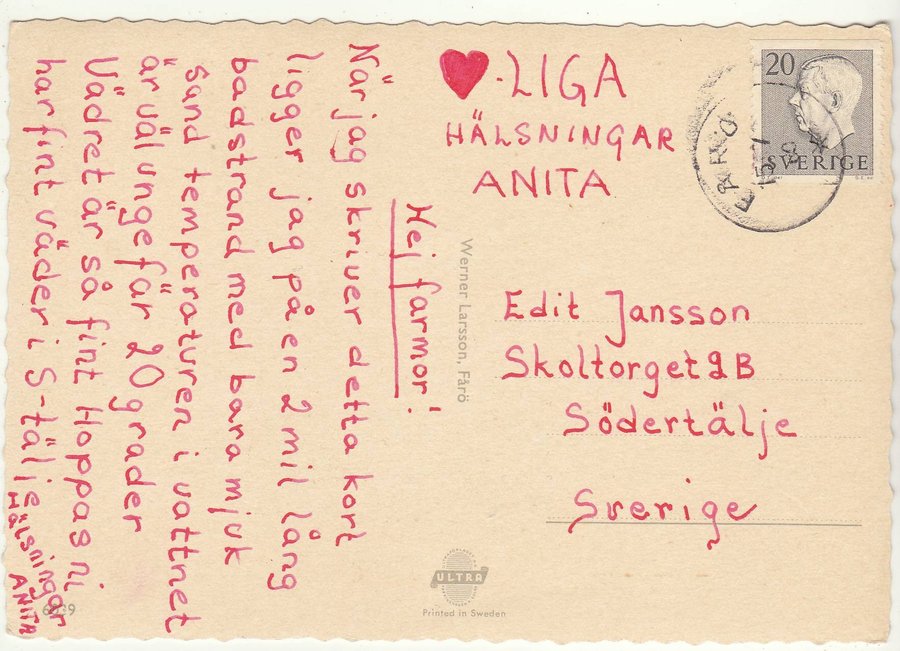 ♥-LIGA
HÄLSNINGAR
ANITA
Hej farmor!
När jag skriver detta kort
ligger jag på en 2 mil lång
badstrand med bara mjuk
sand temperaturen i vattnet
är väl ungefär 20 grader
Vädret är så fint Hoppas ni
har fint väder i S-tälje
Hälsningar
ANITA
Edit Jansson
Skoltorget 2B
Södertälje
Sverige
20
SVERIGE
Werner Larsson, Fårö
ULTRA
Printed in Sweden